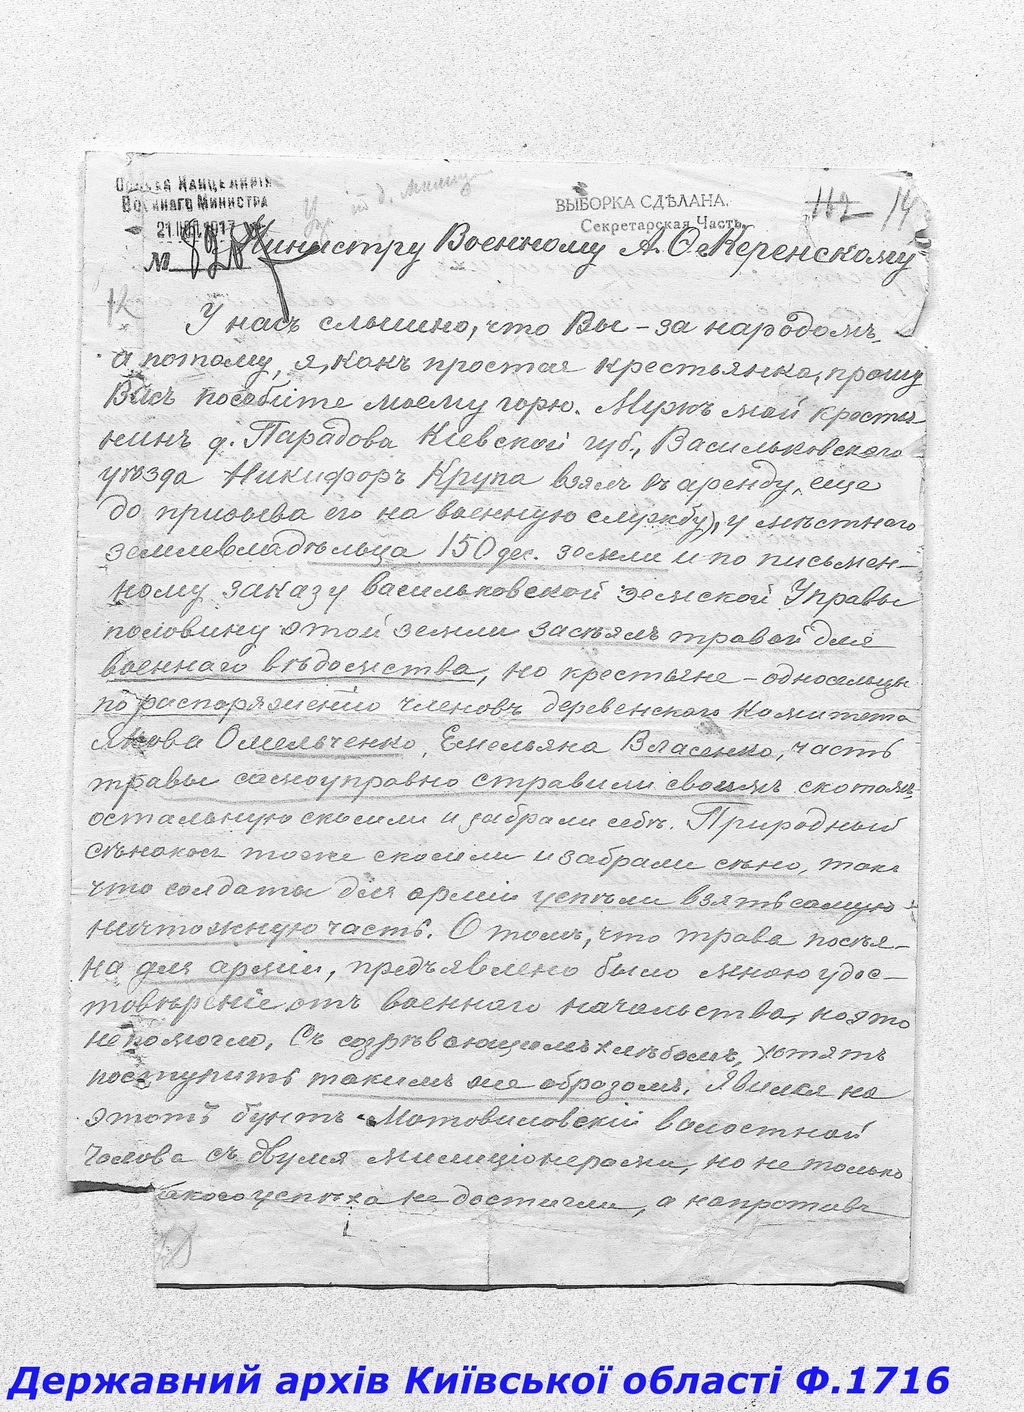 Особая Канцелярія
Военнаго Министра
21 1917
№ 8287
ВЫБОРКА СДѢЛАНА.
Секретарская Часть.
112 14
Министру Военному А. Ѳ. Керенскому
У насъ слышно, что Вы – за народомъ,
а потому, я, какъ простая крестьянка, прошу
Васъ пособите моему горю. Мужъ мой кресть-
нинъ д. Парадова Кіевской губ., Васильковского
уѣзда Никифоръ Крупа взялъ въ аренду, еще
до призыва его на военную службу, у мѣстнаго
землевладѣльца 150 дес. земли и по письмен-
ному заказу васильковской земской Управы
половину этой земли засѣялъ травой для
военнаго вѣдомства, но крестьяне – односельцы
по распоряженію членовъ деревенского Комитета
Якова Омельченко, Емельяна Власенко, часть
травы самоуправно стравили своимъ скотомъ,
остальную скосили и забрали себѣ. Природный
сѣнокосъ тоже скосили и забрали сѣно, такъ
что солдаты для арміи успѣли взять самую
ничтожную часть. О томъ, что трава посѣя-
на для арміи, предъявлено было мною удос-
товѣреніе отъ военнаго начальства, но это
не помогло. Съ созрѣвающимъ хлѣбомъ, хотятъ
поступить такимъ же образомъ. Явился на
этотъ бунтъ Мотовиловскій волостной
Голова съ двумя милиціонерами, но не только
успѣха не достигли, а напротивъ
Державний архів Київської області Ф.1716